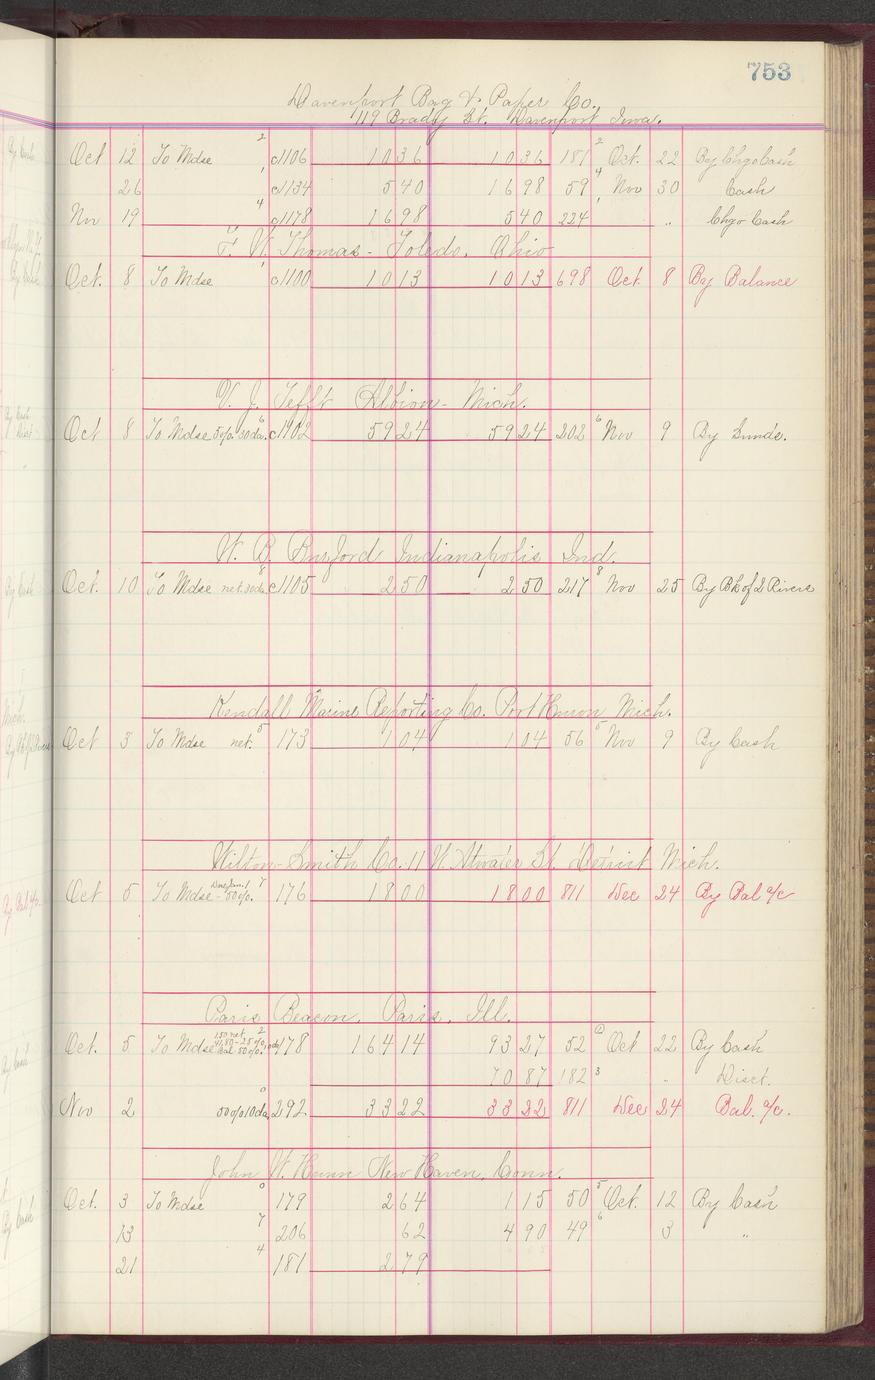 753
Davenport Bag & Paper Co.
119 Brady St. Davenport Iowa.
Oct 12 To Mdse 2 c1106 1036 1036 181 2 Oct. 22 By Chgo Cash
26 1 c1134 540 1698 59 4 Nov 30 Cash
Nov 19 4 c1178 1698 540 224 1 " Chgo Cash
F. W. Thomas - Toledo. Ohio
Oct. 8 To Mdse 1 c1100 1013 1013 698 Oct. 8 By Balance
V. J. Tefft Albion - Mich.
Oct 8 To Mdse 5% 30 da. 6 c1102 5924 5924 202 6 Nov 9 By Sunds.
W. B. Burford Indianapolis Ind.
Oct. 10 To Mdse net 30 da. 8 c1105 250 250 217 8 Nov 25 By Bk of 2 Rivers
Kendall Marine Reporting Co. Port Huron Mich.
Oct 3 To Mdse net. 5 173 104 104 56 5 Nov 9 By Cash
Wilton-Smith Co. 11 W. Atwater St. Detroit Mich.
Oct 5 To Mdse 50%. 7 176 1800 1800 811 Dec 24 By Bal a/c
Paris Beacon. Paris. Ill.
Oct. 5 To Mdse 150 net Bal 50%. 2 178 16414 9327 52 Oct 22 By Cash
7087 182 3 " Disct.
Nov 2 50% 10 da. 0 292 3322 3322 811 Dec 24 Bal. a/c.
John W. Hunn New Haven, Conn.
Oct. 3 To Mdse 0 179 264 115 50 5 Oct. 12 By Cash
13 7 206 62 490 49 6 3 "
21 4 181 279